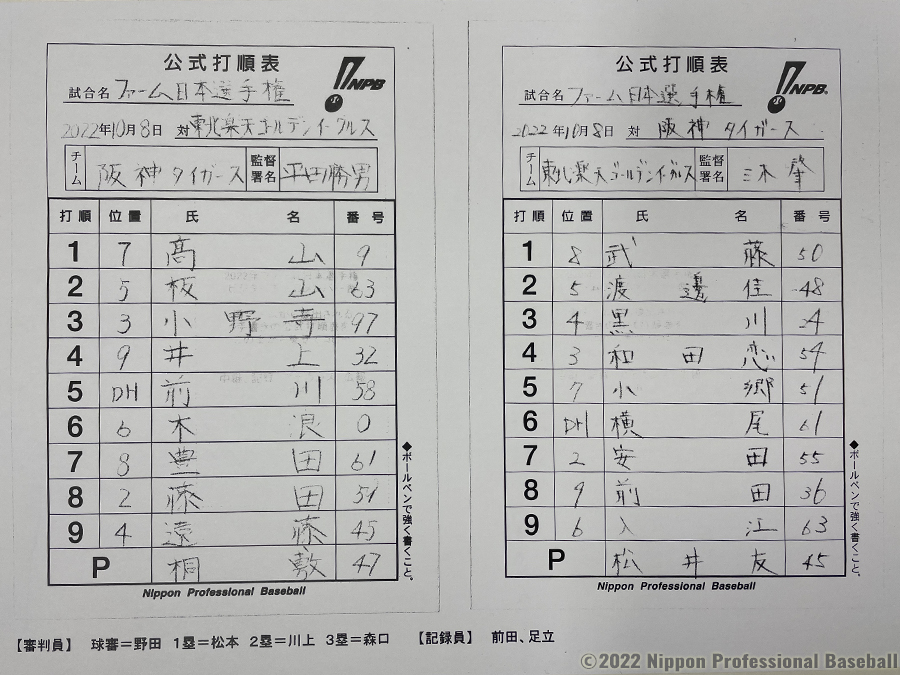 公式打順表
NPB
試合名 ファーム日本選手権
2022年10月8日 対 東北楽天ゴールデンイーグルス
チーム 阪神タイガース 監督署名 平田勝男
打順 位置 氏名 番号
1 7 髙山 9
2 5 板山 63
3 3 小野寺 97
4 9 井上 32
5 DH 前川 58
6 6 木浪 0
7 8 豊田 61
8 2 藤田 59
9 4 遠藤 45
P 桐敷 47
◆ボールペンで強く書くこと。
Nippon Professional Baseball
公式打順表
NPB
試合名 ファーム日本選手権
2022年10月8日 対 阪神タイガース
チーム 東北楽天ゴールデンイーグルス 監督署名 三木肇
打順 位置 氏名 番号
1 8 武藤 50
2 5 渡邊佳 48
3 4 黒川 24
4 3 和田恋 54
5 7 小郷 51
6 DH 横尾 61
7 2 安田 55
8 9 前田 36
9 6 入江 63
P 松井友 45
◆ボールペンで強く書くこと。
Nippon Professional Baseball
【審判員】 球審=野田 1塁=松本 2塁=川上 3塁=森口 【記録員】 前田、足立
©2022 Nippon Professional Baseball